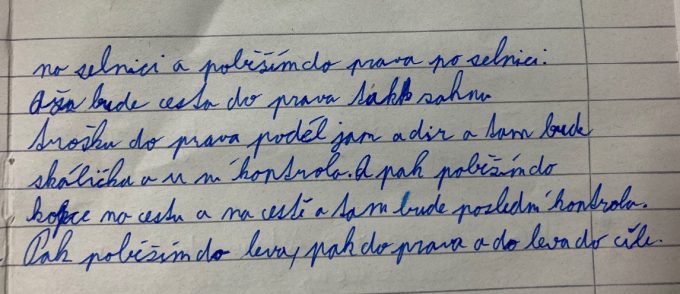 na selnici a poběžím do prava po selnici.
a za bude cesta do prava tak sahnu
trošku do prava podél jam a dir a tam bude
skálička a u ní kontrola. A pak poběžím do
kopce na cestu a na cestě a tam bude poslední kontrola.
Pak poběžím do leva, pak do prava a do leva do cíle.